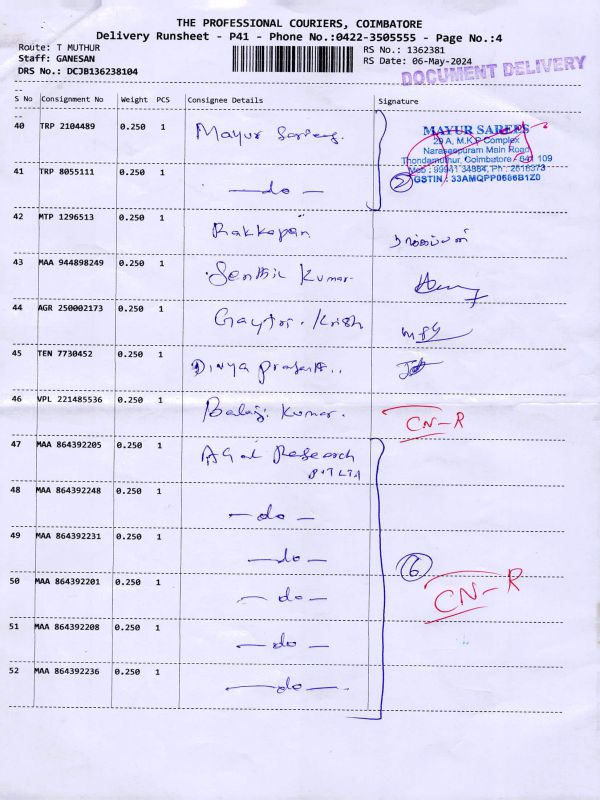 THE PROFESSIONAL COURIERS, COIMBATORE
Delivery Runsheet - P41 - Phone No.:0422-3505555 - Page No.:4
Route: T MUTHUR
Staff: GANESAN
DRS No.: DCJB136238104
RS No.: 1362381
RS Date: 06-May-2024
DOCUMENT DELIVERY
S No Consignment No Weight PCS Consignee Details Signature
40 TRP 2104489 0.250 1 Mayur Sarees.
MAYUR SAREES
29 A, M.K.P Complex
Narasepuram Main Road
Thondamuthur, Coimbatore - 641 109
Mob : 99941 34884, Ph : 2618373
GSTIN : 33AMQPP0686B1Z0
41 TRP 8055111 0.250 1 — do — 2
42 MTP 1296513 0.250 1 Rakkapan
43 MAA 944898249 0.250 1 Senthil Kumar.
44 AGR 250002173 0.250 1 Gaytri. Krish
45 TEN 7730452 0.250 1 Divya
46 VPL 221485536 0.250 1 Balaji Kumar. CN-R
47 MAA 864392205 0.250 1 Research
PVT LTD
48 MAA 864392248 0.250 1 — do —
49 MAA 864392231 0.250 1 — do —
50 MAA 864392201 0.250 1 — do — 6 CN-R
51 MAA 864392208 0.250 1 — do —
52 MAA 864392236 0.250 1 — do —